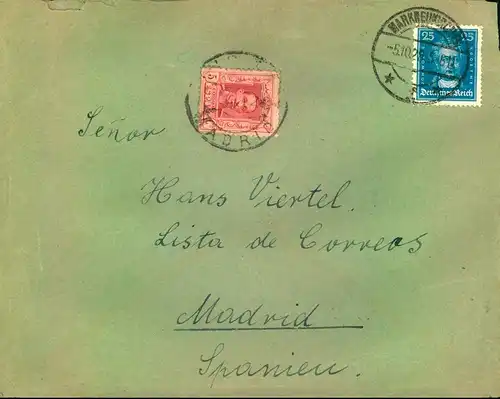 MARKNEUKIRCHEN
-5.10.2
25 25
Deutsches Reich
5
MADRID
Señor
Hans Viertel.
Lista de Correos
Madrid
Spanien.